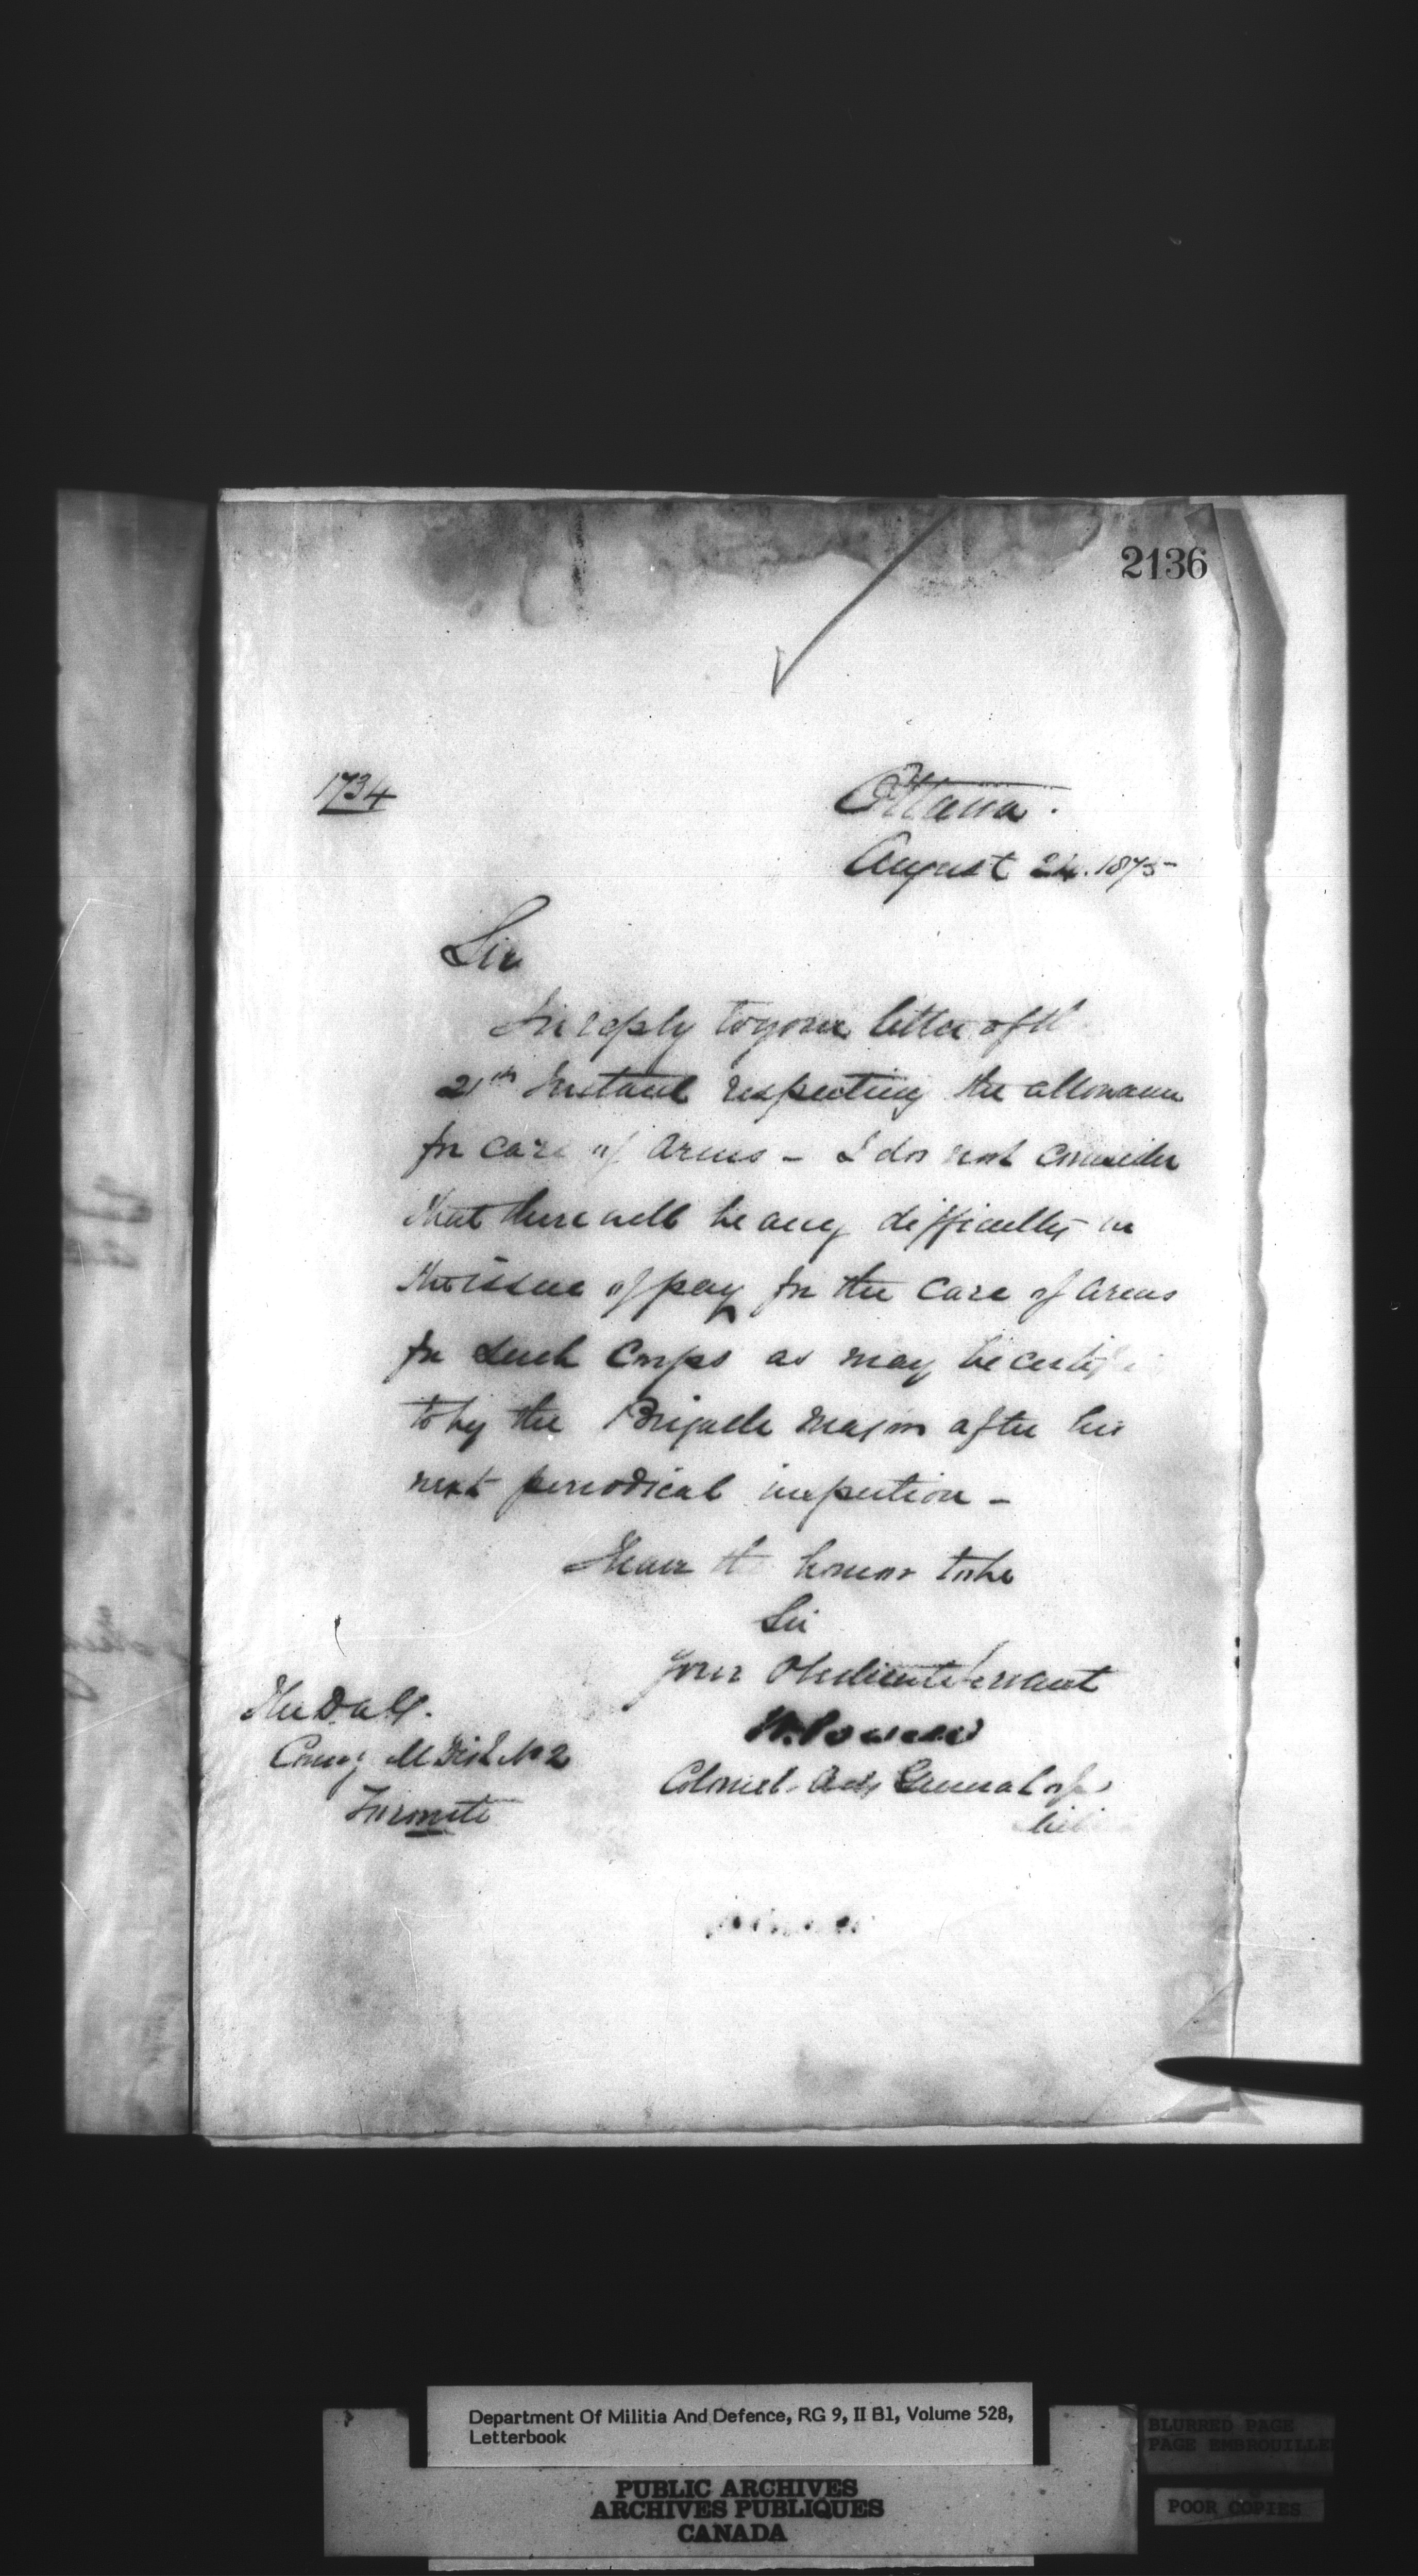 2136
1734
Ottawa.
August 24. 1875
Sir
In reply to your letter of th
21th Instant respecting the allowance
for care of Arms - I do not consider
that there will be any difficulty in
the issue of pay for the care of Arms
for such Corps as may be certifi
to by the Brigade Major after his
next periodical inspection -
I have the honor to be
Sir
Your Obedient Servant
W. Powell
Colonel. Adj General of
Mili
The D.A.G.
Comg M Dist No 2
Toronto
Department Of Militia And Defence, RG 9, II B1, Volume 528,
Letterbook
PUBLIC ARCHIVES
ARCHIVES PUBLIQUES
CANADA
BLURRED PAGE
PAGE EMBROUILLE
POOR COPIES